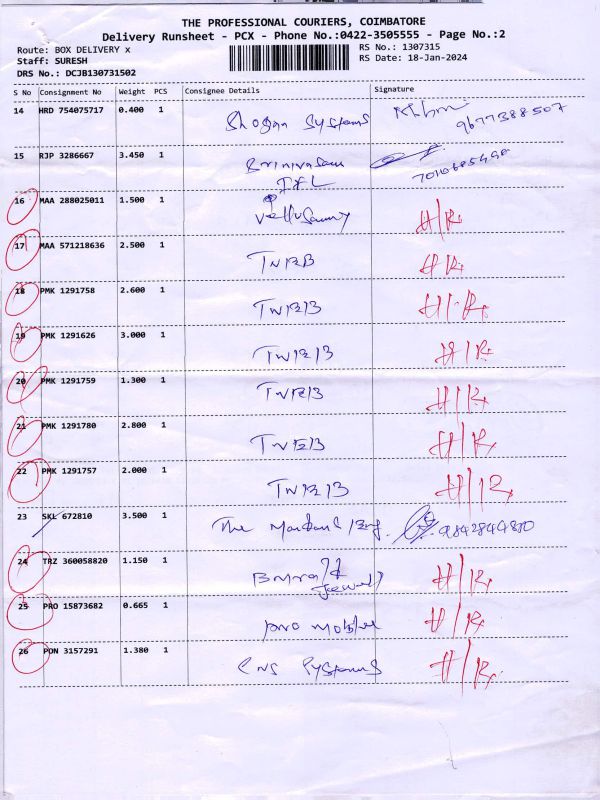 THE PROFESSIONAL COURIERS, COIMBATORE
Delivery Runsheet - PCX - Phone No.:0422-3505555 - Page No.:2
Route: BOX DELIVERY x
RS No.: 1307315
Staff: SURESH
RS Date: 18-Jan-2024
DRS No.: DCJB130731502
S No Consignment No Weight PCS Consignee Details Signature
14 HRD 754075717 0.400 1 Systems 9677388507
15 RJP 3286667 3.450 1 Srinivasan
IFL
16 MAA 288025011 1.500 1 H/R
17 MAA 571218636 2.500 1 TNEB H/R
18 PMK 1291758 2.600 1 TNEB H/R
19 PMK 1291626 3.000 1 TNEB H/R
20 PMK 1291759 1.300 1 TNEB H/R
21 PMK 1291780 2.800 1 TNEB H/R
22 PMK 1291757 2.000 1 TNEB H/R
23 SKL 672810 3.500 1 The
24 TRZ 360058820 1.150 1 H/R
25 PRO 15873682 0.665 1 pro H/R
26 PON 3157291 1.380 1 CNS Systems H/R